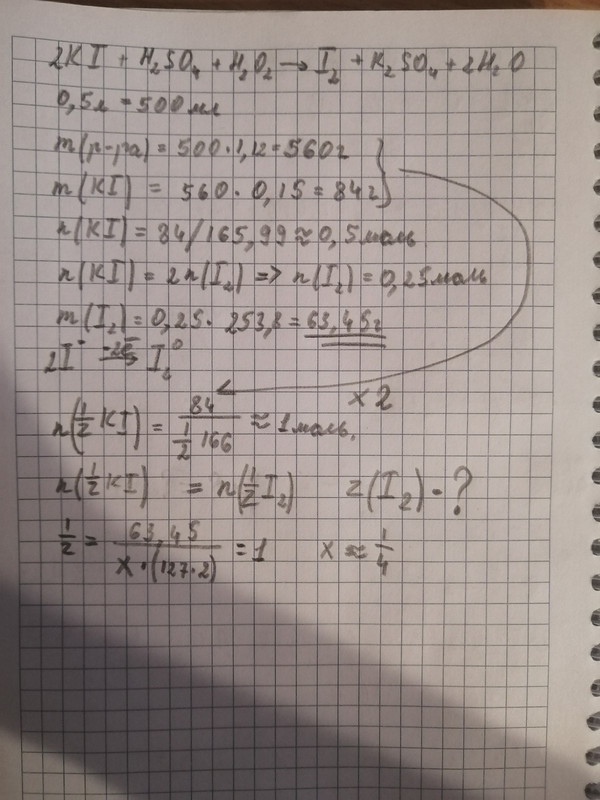 2KI + H₂SO₄ + H₂O₂ → I₂ + K₂SO₄ + 2H₂O
0,5л = 500мл
m(р-ра) = 500·1,12 = 560г
m(KI) = 560·0,15 = 84г
n(KI) = 84/165,99 ≈ 0,5моль
n(KI) = 2n(I₂) => n(I₂) = 0,25моль
m(I₂) = 0,25·253,8 = 63,45г
2I⁻ -2e̅→ I₂⁰
x2
n(1/z KI) = 84 / (1/2 166) ≈ 1моль.
n(1/z KI) = n(1/z I₂) z(I₂) - ?
1/z = 63,45 / (x·(127·2)) = 1 x ≈ 1/4